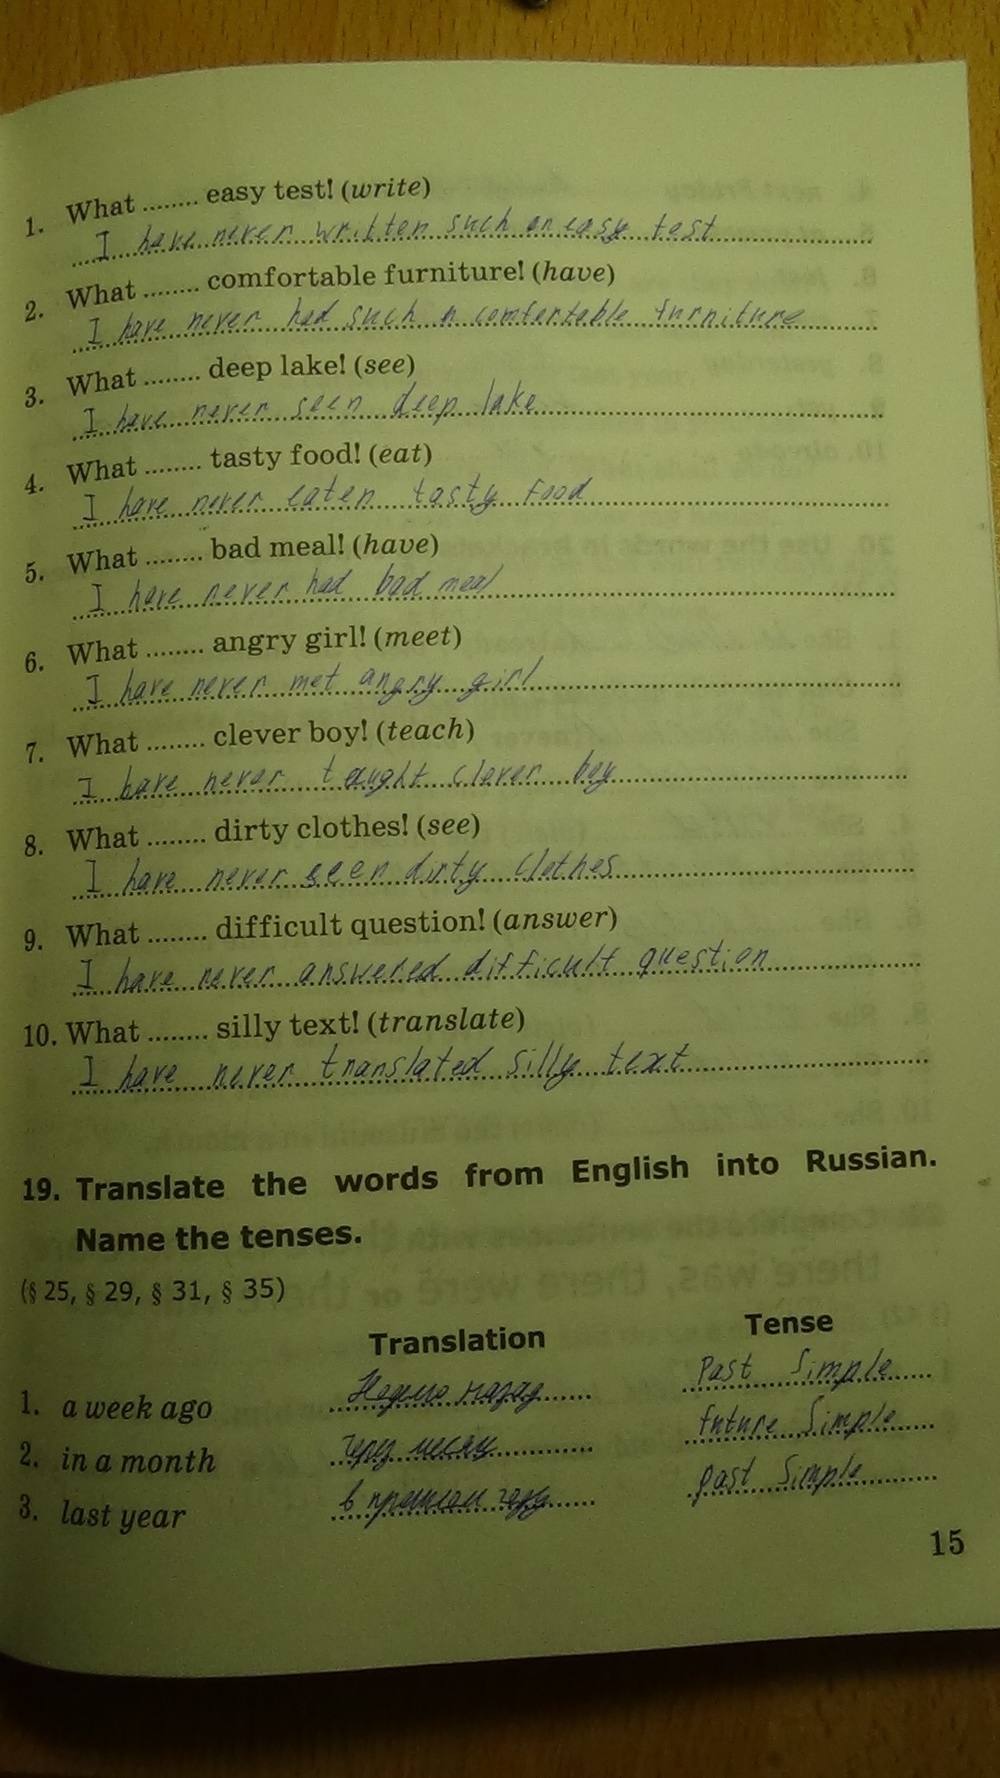 1. What ........ easy test! (write)
I have never written such an easy test
2. What ........ comfortable furniture! (have)
I have never had such a comfortable furniture
3. What ........ deep lake! (see)
I have never seen deep lake
4. What ........ tasty food! (eat)
I have never eaten tasty food
5. What ........ bad meal! (have)
I have never had bad meal
6. What ........ angry girl! (meet)
I have never met angry girl
7. What ........ clever boy! (teach)
I have never taught clever boy
8. What ........ dirty clothes! (see)
I have never seen dirty clothes
9. What ........ difficult question! (answer)
I have never answered difficult question
10. What ........ silly text! (translate)
I have never translated silly text
19. Translate the words from English into Russian.
Name the tenses.
(§ 25, § 29, § 31, § 35)
Translation Tense
1. a week ago Неделю назад Past Simple
2. in a month через месяц Future Simple
3. last year в прошлом году past Simple
15